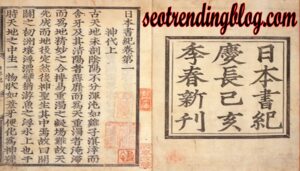 seotrendingblog.com
日本書紀
慶長己亥
季春新刊
日本書紀卷第一
神代上
古天地未剖陰陽不分渾沌如雞子溟涬而
含牙及其淸陽者薄靡而爲天重濁者淹滯
而爲地精妙之合搏易重濁之凝竭難故天
先成而地後定然後神聖生其中焉故曰開
闢之初洲壤浮漂譬猶游魚之浮水上也于
時天地之中生一物狀如葦牙便化爲神號